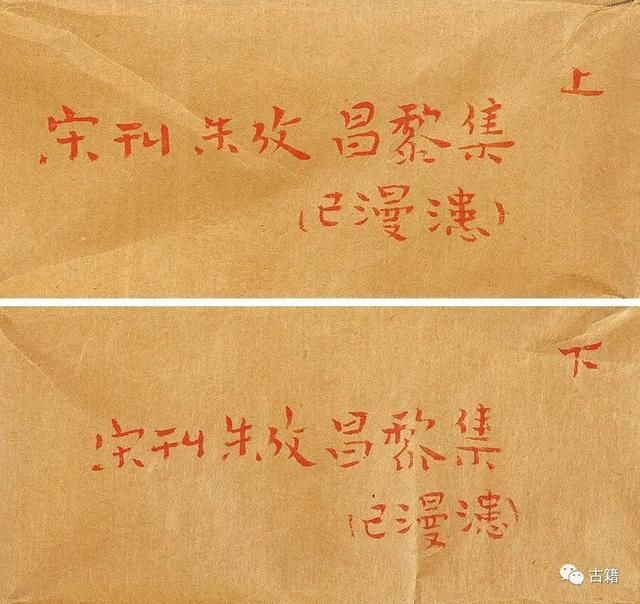 上
宋刊朱攷昌黎集
(已漫漶)
下
宋刊朱攷昌黎集
(已漫漶)
古籍